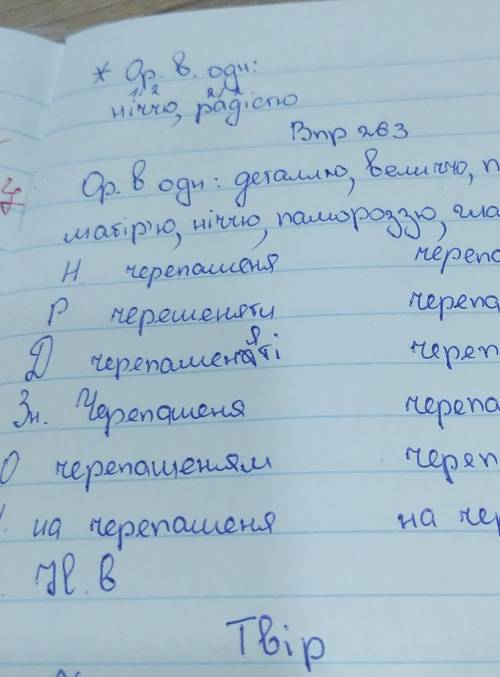 * Ор. в. одн:
ніччю, радістю
Впр 263
Ор. в одн: деталлю, величчю, п
матір'ю, ніччю, памороззю, гла
Н черепашеня черепа
Р черешеняти черепа
Д черепашеняті череп
Зн. Черепашеня черепа
О черепащеням череп
на черепашеня на чер
Н. в
Твір